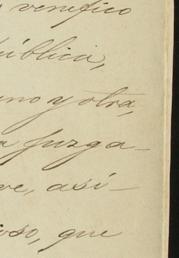 venefico
ública,
uno y otra,
a juzga-
ve, así-
oso, que